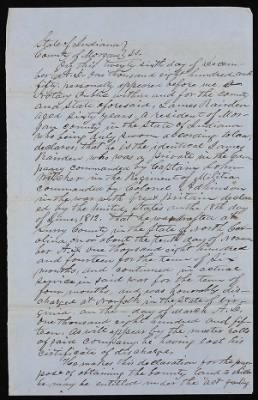 State of Indiana }
County of Morgan } SS.
On this twenty sixth day of Decem-
ber A.D. one thousand eight hundred and
fifty personally appeared before me a
Notary Public within and for the county
and State aforesaid, James
aged sixty years, a resident of Mor-
gan county in the State of Indiana
who being duly sworn according to law,
declares that he is the identical James
who was a private in the com-
pany commanded by Captain John
in the Regiment of Militia
commanded by Colonel Atkinson
in the war with Great Britain declared
by the United States on the 18th day
of June, 1812. That he was drafted at
Surry County in the State of North Car-
olina, on or about the tenth day of Novem-
ber A.D. one thousand eight hundred
and fourteen for the term of six
months, and continued in actual
service in said war for the term of
four months, and was honorably dis-
charged at Norfolk in the State of Vir-
ginia, on the day of March A.D.
one thousand eight hundred and fif-
teen as will appear by the muster rolls
of said company he having lost his
certificate of discharge.
He makes this declaration for the pur-
pose of obtaining the bounty land to which
he may be entitled under the act